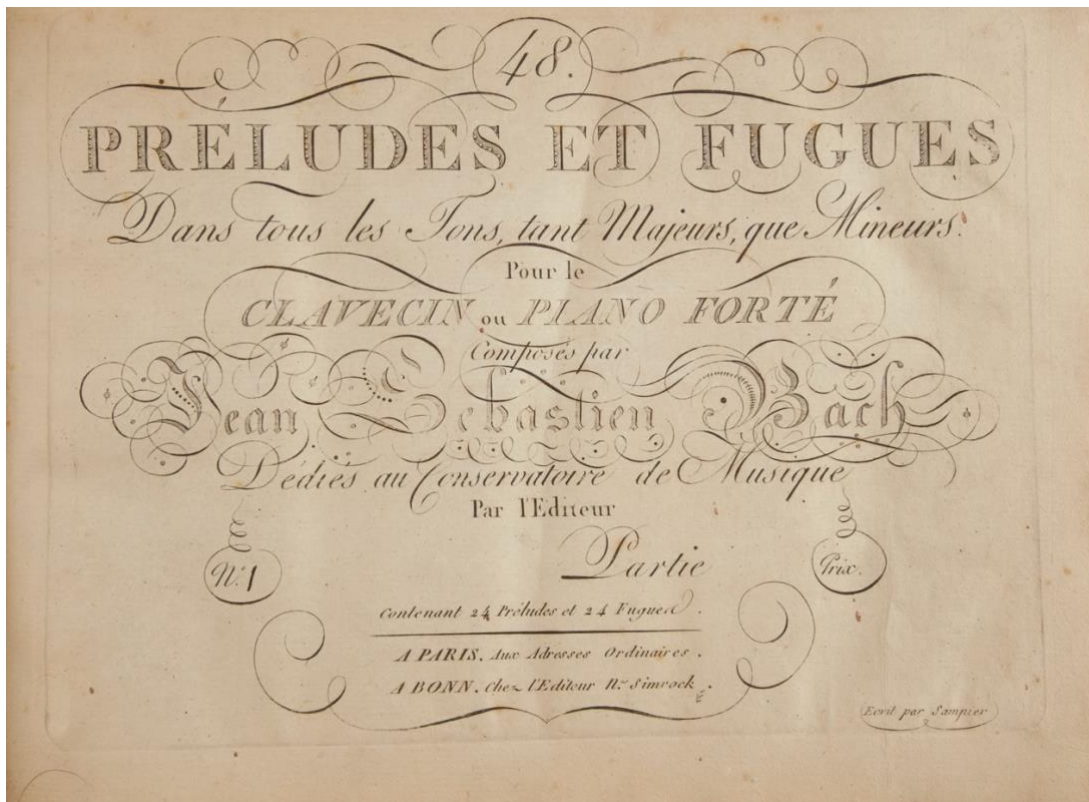 48.
PRÉLUDES ET FUGUES
Dans tous les Tons, tant Majeurs, que Mineurs.
Pour le
CLAVECIN ou PIANO FORTÉ
Composés par
Jean Sebastien Bach
Dédiés au Conservatoire de Musique
Par l'Editeur
Partie
N.º 1
Prix.
Contenant 24 Préludes et 24 Fugues.
A PARIS. Aux Adresses Ordinaires.
A BONN. Chez l'Editeur N. Simrock.
Ecrit par Sampier